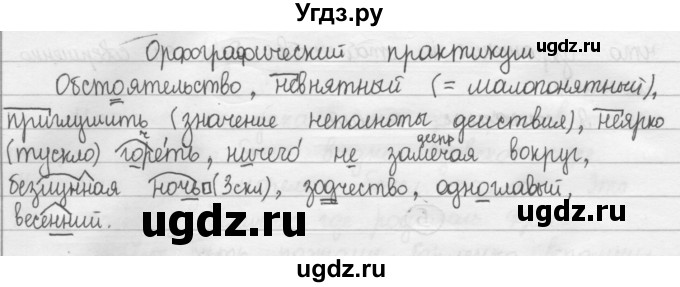 Угдз.ру
Орфографический практикум
Обстоятельство, невнятный (= малопонятный),
приглушить (значение неполноты действия), неярко
(тускло) горе́ть, ничего́ не замечая вокруг,
деепр
безлунная ночь (3 скл), зодчество, одноглавый,
весенний.
ugdz.ru
ugdz.ru